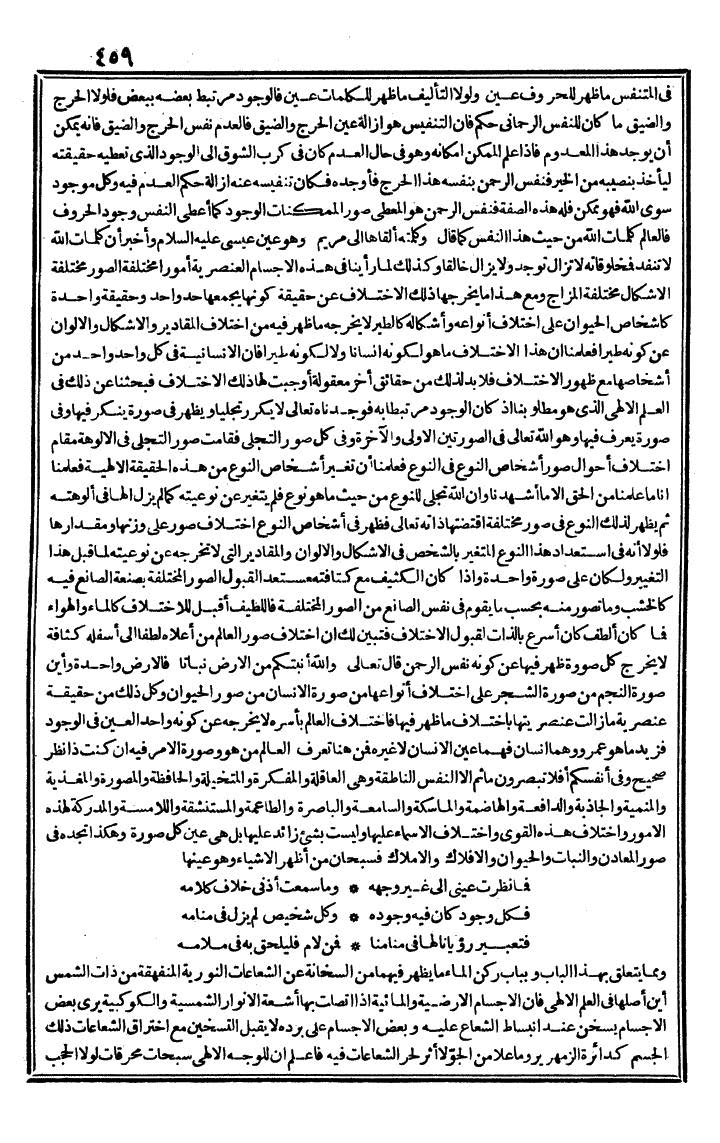 ٤٥٩
فى المتنفس ماظهر للحروف عين ولولا التأليف ماظهر للكلمات عين فالوجود مرتبط بعضه ببعض فلولا الحرج
والضيق ما كان للنفس الرحمانى حكم فان التنفيس هو ازالة عين الحرج والضيق فالعدم نفس الحرج والضيق فانه يمكن
أن يوجد هذا المعدوم فاذا علم الممكن امكانه وهو فى حال العدم كان فى كرب الشوق الى الوجود الذى تعطيه حقيقته
ليأخذ بنصيبه من الخير فنفس الرحمن بنفسه هذا الحرج فأوجده فكان تنفيسه عنه ازالة حكم العدم فيه وكل موجود
سوى الله فهو ممكن فله هذه الصفة فنفس الرحمن هو المعطى صور الممكنات الوجود كما أعطى النفس وجود الحروف
فالعالم كلمات الله من حيث هذا النفس كما قال وكلمته ألقاها الى مريم وهو عين عيسى عليه السلام وأخبر أن كلمات الله
لا تنفد فمخلوقاته لا تزال توجد ولا يزال خالقا وكذلك لما رأينا فى هذه الاجسام العنصرية أمورا مختلفة الصور مختلفة
الاشكال مختلفة المزاج ومع هذا ما يخرجها ذلك الاختلاف عن حقيقة كونها يجمعها حد واحد وحقيقة واحدة
كاشخاص الحيوان على اختلاف أنواعه وأشكاله كالطير لا يخرجه ماظهر فيه من اختلاف المقادير والاشكال والالوان
عن كونه طيرا فعلمنا ان هذا الاختلاف ماهو لكونه انسانا ولا لكونه طيرا فان الانسانية فى كل واحد واحد من
أشخاصها مع ظهور الاختلاف فلا بد لذلك من حقائق أخر معقولة أوجبت لها ذلك الاختلاف فبحثنا عن ذلك فى
العلم الالهى الذى هو مطلوبنا اذ كان الوجود مرتبطا به فوجدناه تعالى لا يكرر تجليا ويظهر فى صورة ينكر فيها وفى
صورة يعرف فيها وهو الله تعالى فى الصورتين الاولى والآخرة وفى كل صور التجلى فقامت صور التجلى فى الالوهة مقام
اختلاف أحوال صور أشخاص النوع فى النوع فعلمنا أن تغير أشخاص النوع من هذه الحقيقة الالهية فعلمنا
انا ما علمنا من الحق الا ما أشهدنا وان الله تجلى للنوع من حيث ماهو نوع فلم يتغير عن نوعيته كما لم يزل الها فى ألوهته
ثم يظهر لذلك النوع فى صور مختلفة اقتضتها ذاته تعالى فظهر فى أشخاص النوع اختلاف صور على وزنها ومقدارها
فلولا أنه فى استعداد هذا النوع المتغير بالشخص فى الاشكال والالوان والمقادير التى لا تخرجه عن نوعيته لما قبل هذا
التغيير ولكان على صورة واحدة واذا كان الكثيف مع كثافته مستعد القبول الصور المختلفة بصنعة الصانع فيه
كالخشب وما تصور منه بحسب ما يقوم فى نفس الصانع من الصور المختلفة فاللطيف أقبل للاختلاف كالماء والهواء
فما كان ألطف كان أسرع بالذات لقبول الاختلاف فتبين لك ان اختلاف صور العالم من أعلاه لطفا الى أسفله كثافة
لا يخرج كل صورة ظهر فيها عن كونه نفس الرحمن قال تعالى والله أنبتكم من الارض نباتا فالارض واحدة وأين
صورة النجم من صورة الشجر على اختلاف أنواعها من صورة الانسان من صور الحيوان وكل ذلك من حقيقة
عنصرية ما زالت عنصريتها باختلاف ماظهر فيها فاختلاف العالم بأسره لا يخرجه عن كونه واحد العين فى الوجود
فزيد ماهو عمرو وهما انسان فهما عين الانسان لا غيره فمن هنا تعرف العالم من هو وصورة الامر فيه ان كنت ذا نظر
صحيح وفى أنفسكم أفلا تبصرون ما ثم الا النفس الناطقة وهى العاقلة والمفكرة والمتخيلة والحافظة والمصورة والمغذية
والمنمية والجاذبة والدافعة والهاضمة والماسكة والسامعة والباصرة والطاعمة والمستنشقة واللامسة والمدركة لهذه
الامور واختلاف هذه القوى واختلاف الاسماء عليها وليست بشئ زائد عليها بل هى عين كل صورة وهكذا تجده فى
صور المعادن والنبات والحيوان والافلاك والاملاك فسبحان من أظهر الاشياء وهو عينها
فما نظرت عينى الى غير وجهه * وما سمعت أذنى خلاف كلامه
فكل وجود كان فيه وجوده * وكل شخيص لم يزل فى منامه
فتعبير رؤيانا لها فى منامنا * فمن لام فليلحق به فى ملامه
ومما يتعلق بهذا الباب وبباب ركن الماء ما يظهر فيهما من السخانة عن الشعاعات النورية المنفهقة من ذات الشمس
أين أصلها فى العلم الالهى فان الاجسام الارضية والمائية اذا اتصلت بها أشعة الانوار الشمسية والكوكبية يرى بعض
الاجسام يسخن عند انبساط الشعاع عليه وبعض الاجسام على برده لا يقبل التسخين مع اختراق الشعاعات ذلك
الجسم كدائرة الزمهرير وما علا من الجو لا أثر لحر الشعاعات فيه فاعلم ان للوجه الالهى سبحات محرقات لولا الحجب